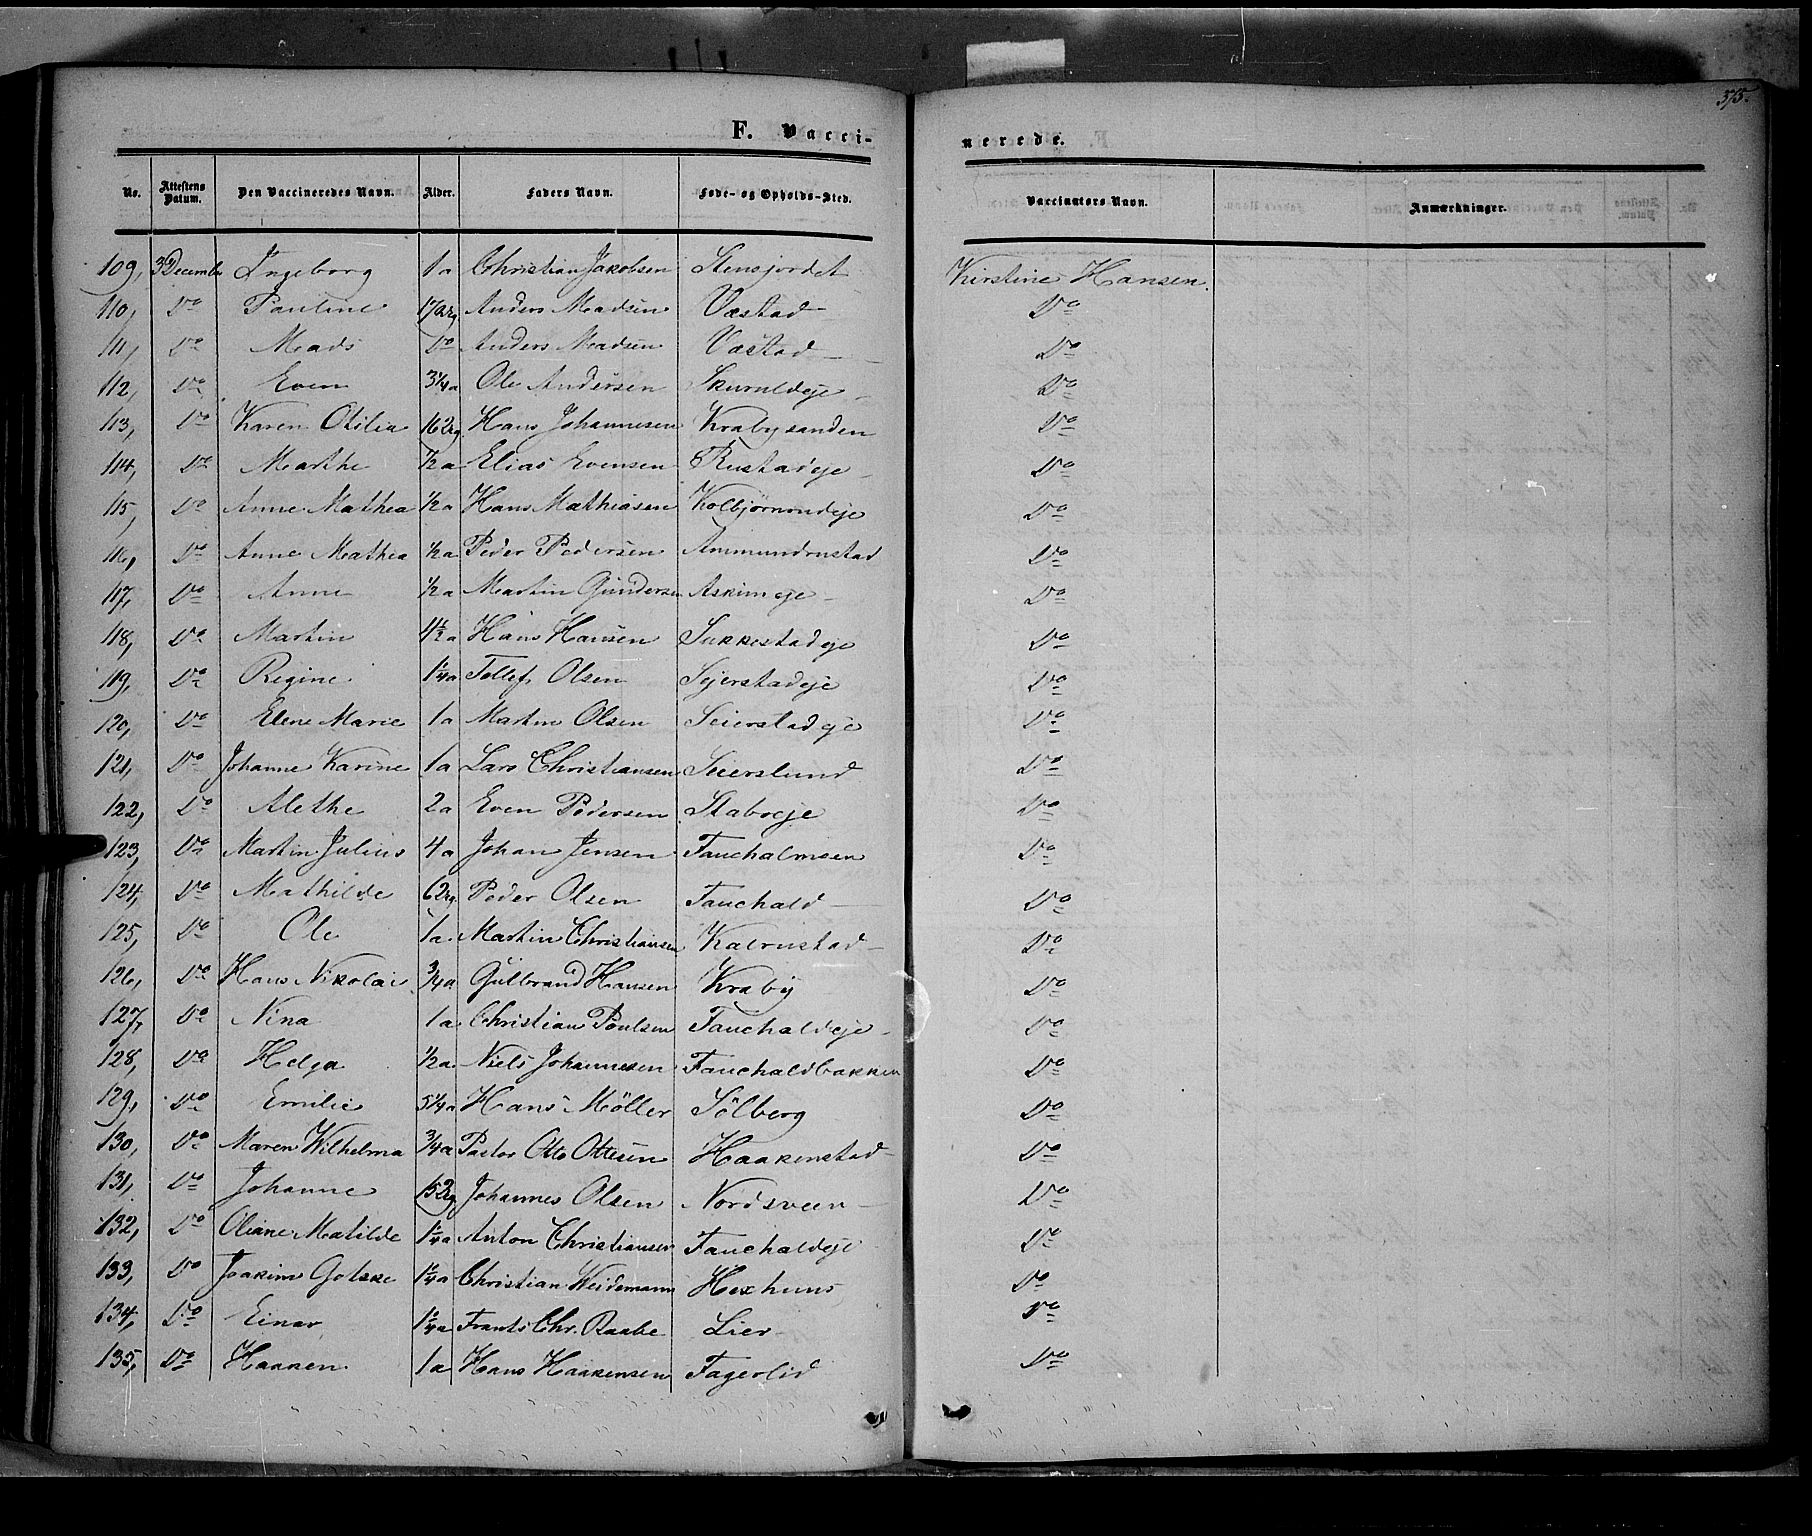 375.
F. Vacci-
nerede.
No. Attestens Datum. Den Vaccineredes Navn. Alder. Faders Navn. Føde- og Opholds-Sted. Vaccinators Navn. Anmærkninger.
109, 3 December Ingeborg 1 a Christian Jakobsen Stensjordet Kirstine Hansen.
110, Do Pauline 17 aarg Anders Madsen Væstad Do
111, Do Mads Do Anders Madsen Væstad Do
112, Do Even 3 1/4 a Ole Andersen Do
113, Do Karen Otilia Hans Johannesen Krabysanden Do
114, Do Marthe 1/2 a Elias Evensen Rustadeje Do
115, Do Anne Mathea 1/2 a Hans Mathiasen Do
116, Do Anne Mathea 1/2 a Peder Pedersen Ammundrustad Do
117, Do Anne 1/2 a Martin Gundersen Askimeje Do
118, Do Martin 4 1/2 a Hans Hansen Sukkestadeje Do
119, Do Regine 1 1/4 a Tollef Olsen Sejerstadeje Do
120, Do Elene Marie 1 a Martin Olsen Seierstadeje Do
121, Do Johanne Karine 1 a Lars Christiansen Seierslund Do
122, Do Alethe 2 a Even Pedersen Staboeje Do
123, Do Martin Julius 4 a Johan Jensen Fauchalmoen Do
124, Do Mathilde Peder Olsen Fauchald Do
125, Do Ole 1 a Martin Christiansen Kalrustad Do
126, Do Hans Nikolai 3/4 a Gulbrand Hansen Kraby Do
127, Do Nina 1 a Christian Poulsen Fauchaldeje Do
128, Do Helga 1/2 a Niels Johannesen Fauchaldbakken Do
129, Do Emilie 5 1/4 a Hans Möller Sölberg Do
130, Do Maren Wilhelma 3/4 a Pastor Otto Ottesen Haakenstad Do
131, Do Johanne Johannes Olsen Nordsveen Do
132, Do Oliane Matilde 1 1/4 a Anton Christiansen Fauchaldeje Do
133, Do Joakim Gotske 1 1/4 a Christian Weidemann Hexhuus Do
134, Do Einar 1 1/4 a Frants Chr. Raabe Lier Do
135, Do Haaken 1 a Hans Haakensen Fagerlid Do